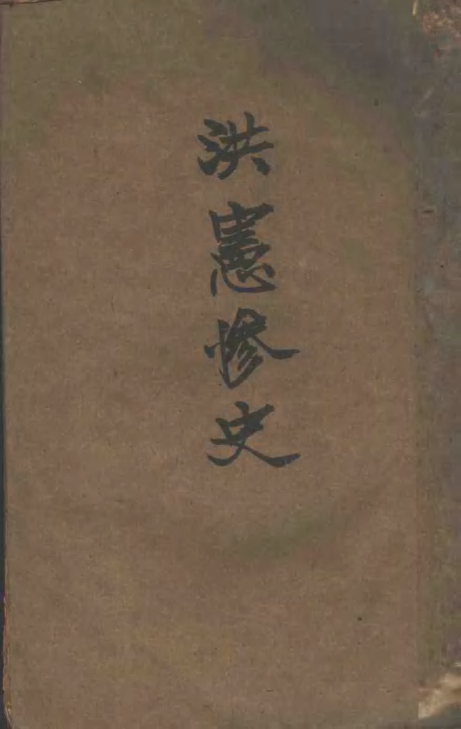 洪憲慘史